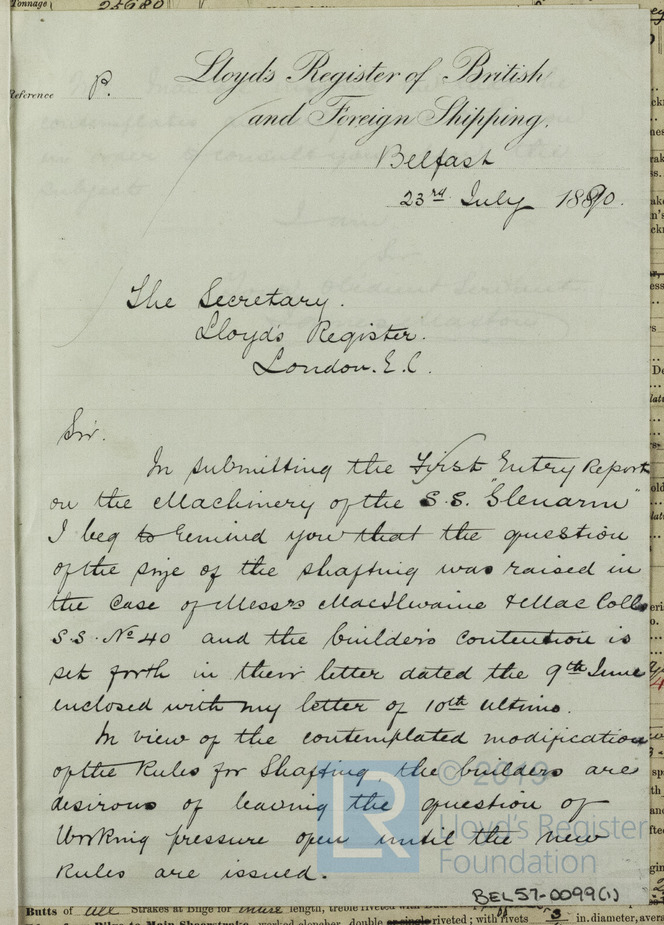 Tonnage
Reference P.
Lloyd's Register of British
and Foreign Shipping.
Belfast
23rd July 1890.
The Secretary.
Lloyd's Register.
London. E.C.
Sir.
In submitting the First Entry Report
on the Machinery of the S.S. "Glenarm"
I beg to remind you that the question
of the size of the shafting was raised in
the case of Messrs MacIlwaine & MacColls
S.S. No 40 and the builders contention is
set forth in their letter dated the 9th June
enclosed with my letter of 10th ultimo.
In view of the contemplated modification
of the Rules for Shafting, the builders are
desirous of leaving the question of
Working pressure open until the new
Rules are issued.
© 2019
LR Lloyd's Register
Foundation
BEL57-0099(1)
Butts of all Strakes at Bilge for whole length, treble riveted with
Bilge to Main Sheerstrake, worked clencher, double or single riveted; with rivets in. diameter,